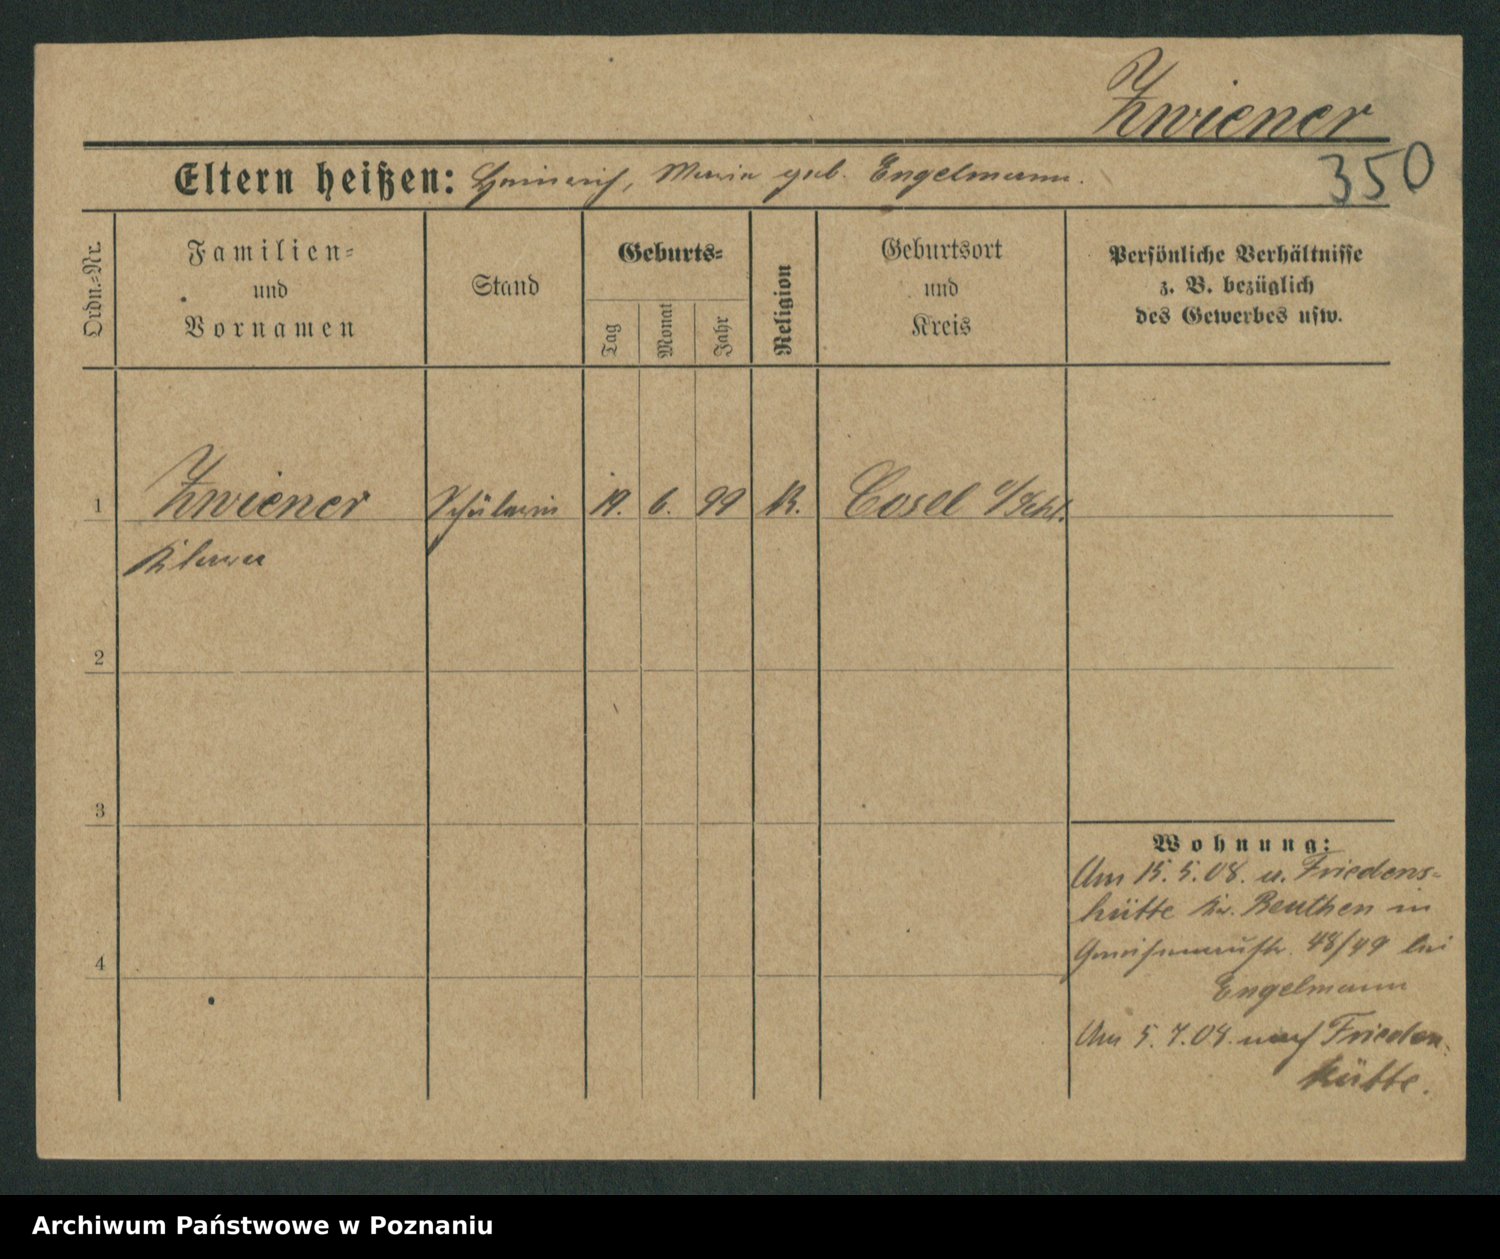 Zwiener
350
Eltern heißen: Heinrich, Maria geb. Engelmann.
Ordn.-Nr.
Familien-
und
Vornamen
Stand
Geburts-
Tag
Monat
Jahr
Religion
Geburtsort
und
Kreis
Persönliche Verhältnisse
z. B. bezüglich
des Gewerbes usw.
1 Zwiener Schülerin 19. 6. 99 K. Cosel o/Schl.
Klara
2
3
4
Wohnung:
Am 15.5.08. v. Friedens-
hütte Kr. Beuthen in
Gneisenaustr. 48/49 bei
Engelmann
Am 5.7.08. nach Frieden-
hütte.
Archiwum Państwowe w Poznaniu